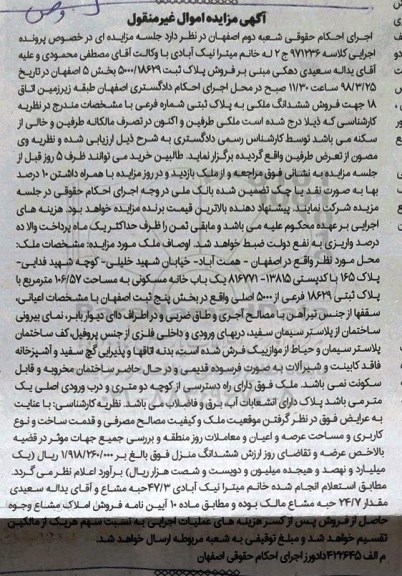 آگهی مزایده اموال غیرمنقول
اجرای احکام حقوقی شعبه دوم اصفهان در نظر دارد جلسه مزایده ای در خصوص پرونده
اجرایی کلاسه ۹۷۱۲۳۶ ج ۲ له خانم میترا نیک آبادی با وکالت آقای مصطفی محمودی و علیه
آقای یداله سعیدی دهکی مبنی بر فروش پلاک ثبت ۵۰۰۰/۱۸۶۲۹ بخش ۵ اصفهان در تاریخ
۹۸/۳/۲۵ ساعت ۱۱/۳۰ صبح در محل اجرای احکام دادگستری اصفهان طبقه زیرزمین اتاق
۱۸ جهت فروش ششدانگ ملکی به پلاک ثبتی شماره فرعی با مشخصات مندرج در نظریه
کارشناسی که ذیلا درج شده است ملکی طرفین و اکنون در تصرف مالکانه طرفین و خالی از
سکنه می باشد توسط کارشناس رسمی دادگستری به شرح ذیل ارزیابی شده و نظریه وی
مصون از تعرض طرفین واقع گردیده برگزار نماید. طالبین خرید می توانند ظرف ۵ روز قبل از
جلسه مزایده به نشانی فوق مراجعه و از ملک بازدید و در روز مزایده با همراه داشتن ۱۰ درصد
بها به صورت نقد یا چک تضمین شده بانک ملی در وجه اجرای احکام حقوقی در جلسه
مزیده شرکت نمایند. پیشنهاد دهنده بالاترین قیمت برنده مزایده خواهد بود. هزینه های
اجرایی بر عهده محکوم علیه می باشد و مابقی ثمن را ظرف حداکثر یک ماه پرداخت والا ده
درصد واریزی به نفع دولت ضبط خواهد شد. اوصاف ملک مورد مزایده: مشخصات ملک:
محل مورد نظر واقع در اصفهان - همت آباد- خیابان شهید خلیلی- کوچه شهید فدایی-
پلاک ۱۶۵ با کدپستی ۱۳۸۱۵-۸۱۶۷۷۱ یک باب خانه مسکونی به مساحت ۱۰۶/۵۷ مترمربع با
پلاک ثبتی ۱۸۶۲۹ فرعی از ۵۰۰۰ اصلی واقع در بخش پنج ثبت اصفهان با مشخصات اعیانی،
سقفها از جنس تیرآهن با مصالح آجری و طاق ضربی و در اطراف دای دیوار باربر، نمای بیرونی
ساختمان از پلاستر سیمان سفید، دربهای ورودی و داخلی فلزی از جنس پروفیل، کف ساختمان
پلاستر سیمان و حیاط از موزاییک فرش شده است، بدنه اتاقها و پذیرایی گچ سفید و آشپزخانه
فاقد کابینت و شیرآلات به صورت فرسوده قدیمی و در حال حاضر ساختمان مخروبه و قابل
سکونت نمی باشد. ملک فوق دارای راه دسترسی از کوچه دو متری و درب ورودی اصلی یک
متر می باشد پلاک دارای انشعابات آب، برق و فاضلاب می باشد. نظریه کارشناسی: با عنایت
به عرایض فوق در نظر گرفتن موقعیت ملک و کیفیت مصالح مصرفی و قدمت ساخت و نوع
کاربری و مساحت عرصه و اعیان و معاملات روز منطقه و بررسی جمیع جهات موثر در قضیه
بالاخص عرضه و تقاضای روز ارزش ششدانگ منزل فوق بالغ بر ۱/۹۱۸/۲۶۰/۰۰۰ ریال (یک
میلیارد و نهصد و هیجده میلیون و دویست و شصت هزار ریال) برآورد اعلام نظر می گردد.
مطابق استعلام انجام شده خانم میترا نیک آبادی ۴۷/۳ حبه مشاع و آقای یداله سعیدی
مقدار ۲۴/۷ حبه مشاع مالک بوده و مطابق ماده ۱۰ آیین نامه فروش املاک مشاع وجوه
حاصل از فروش پس از کسر هزینه های عملیات اجرایی به نسبت سهم هریک از مالکین
تقسیم خواهد شد و مبلغ توقیفی به شعبه مربوطه ارسال خواهد شد.
م الف ۴۲۲۶۴۵ دادورز اجرای احکام حقوقی اصفهان